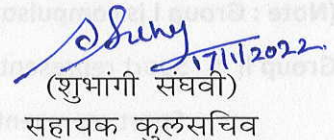 17/1/2022.
(शुभांगी संघवी)
सहायक कुलसचिव